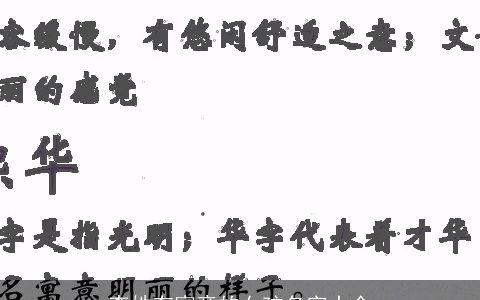 容缓慢，有悠闲舒适之意；文
丽的感觉
华
字是指光明；华字代表着才华
名寓意明丽的样子。